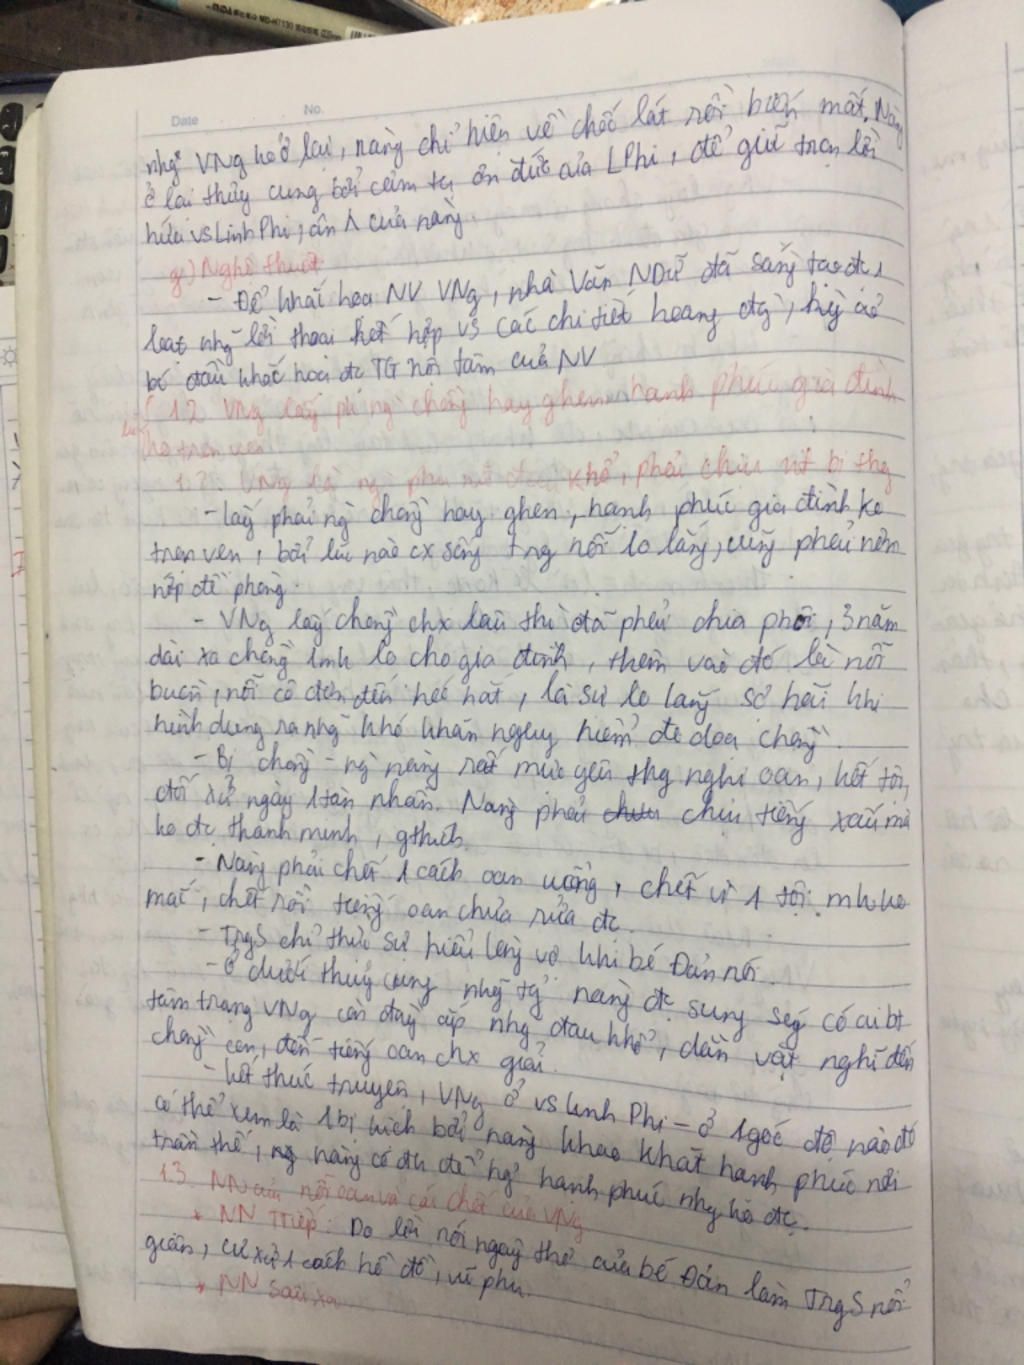 Date No.
nhg VNg ko ở lại, nàng chỉ hiện về chốc lát rồi biến mất. Nàng
ở lại thủy cung bởi cảm tạ ơn đức của LPhi, để giữ trọn lời
hứa vs Linh Phi, ân của nàng.
g) Nghệ thuật
- Để khắc họa NV VNg, nhà văn NDữ đã sáng tạo đc 1
loạt nhg lời thoại kết hợp vs các chi tiết hoang đg, kỳ ảo
bắt đầu khắc họa đc TG nội tâm của NV
1.2 VNg lấy phải ng chồng hay ghen hạnh phúc gia đình
ko trọn vẹn
1.2. VNg là ng phụ nữ đau khổ, phải chịu nỗi bi thg
- lấy phải ng chồng hay ghen, hạnh phúc gia đình ko
trọn vẹn, bởi lúc nào cx sống trg nỗi lo lắng, cũng phải nơm
nớp đề phòng.
- VNg lấy chồng chx lâu thì đã phải chia phôi, 3 năm
dài xa chồng 1mh lo cho gia đình, thêm vào đó là nỗi
buồn, nỗi cô đơn đến héo hắt, là sự lo lắng sợ hãi khi
hình dung ra nhg khó khăn nguy hiểm đe dọa chồng.
- Bị chồng - ng nàng rất mực yêu thg nghi oan, kết tội,
đối xử ngày 1 tàn nhẫn. Nàng phải chịu chịu tiếng xấu mà
ko đc thanh minh, gthích.
- Nàng phải chết 1 cách oan uổng, chết vì 1 tội mh ko
mắc, chết rồi tiếng oan chưa rửa đc.
- TrgS chỉ thực sự hiểu lòng vợ khi bé Đản nói.
- Ở dưới thủy cung nhg tg nàng đc sung sg có ai bt
tâm trạng VNg còn đầy ắp nhg đau khổ, dằn vặt nghĩ đến
chồng con, đến tiếng oan chx giải.
- kết thúc truyện, VNg ở vs Linh Phi - ở 1 góc độ nào đó
có thể xem là 1 bi kịch bởi nàng khao khát hạnh phúc nơi
trần thế, nàng có đủ để hg hạnh phúc nhg ko đc.
1.3. NN của nỗi oan và cái chết của VNg
+ NN Tr tiếp: Do lời nói ngây thơ của bé Đản làm TrgS nổi
giận, cư xử 1 cách hồ đồ, vũ phu.
+ NN sâu xa